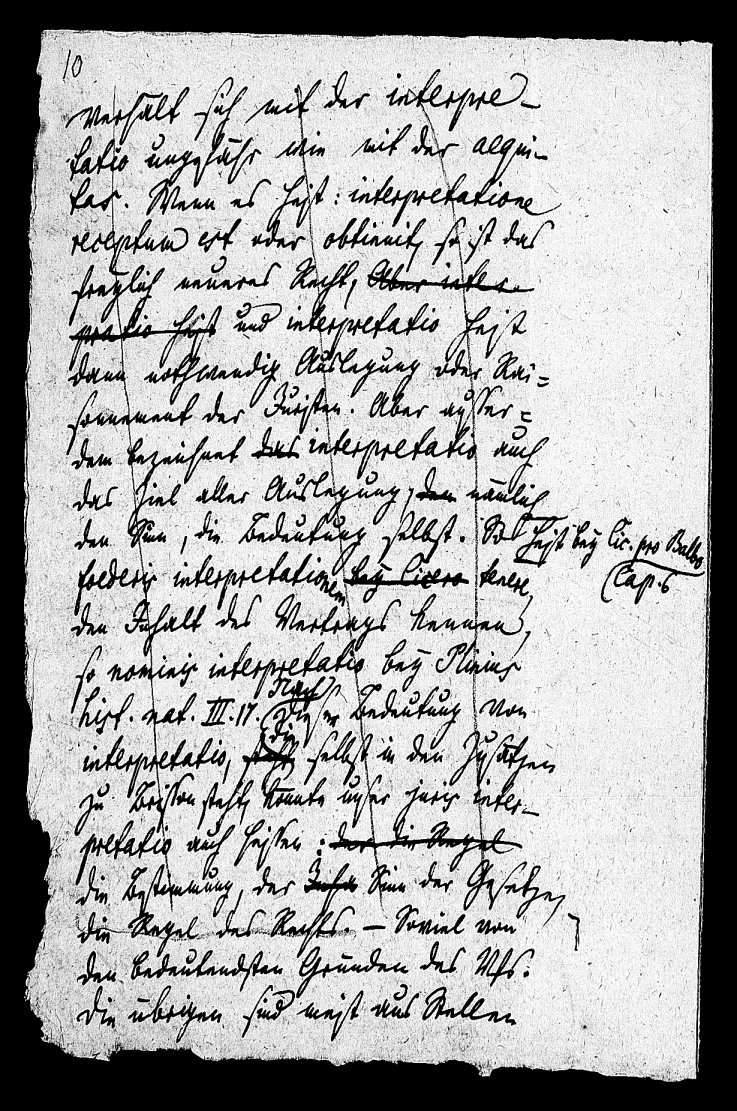 10
verhält sich mit der interpre-
tatio ungefähr wie mit der aequi-
tas. Wenn es heist: interpretatione
receptum est oder obtinuit, so ist das
freylich neueres Recht, Aber inter-
pratio heist und interpretatio heist
dann nothwendig Auslegung oder Rai=
sonnement der Juristen. Aber ausser=
dem bezeichnet das interpretatio auch
das Ziel aller Auslegung, den nämlich
den Sinn, die Bedeutung selbst. So heist bey Cic. pro Balbo
Cap. 6
foederis interpretationem bey Cicero tenere,
den Inhalt des Vertrags kennen,
so nominis interpretatio bey Plinius
hist. nat. III. 17. Nach dieser Bedeutung von
interpretatio, die selbst in den Zusätzen
zu Brisson steht, konnte unser juris inter-
pretatio auch heissen: der die Regel
die Bestimmung, der Inha Sinn der Gesetze,
die Regel des Rechts. – Soviel von
den bedeutendsten Gründen des Vfs.
Die übrigen sind meist aus Stellen